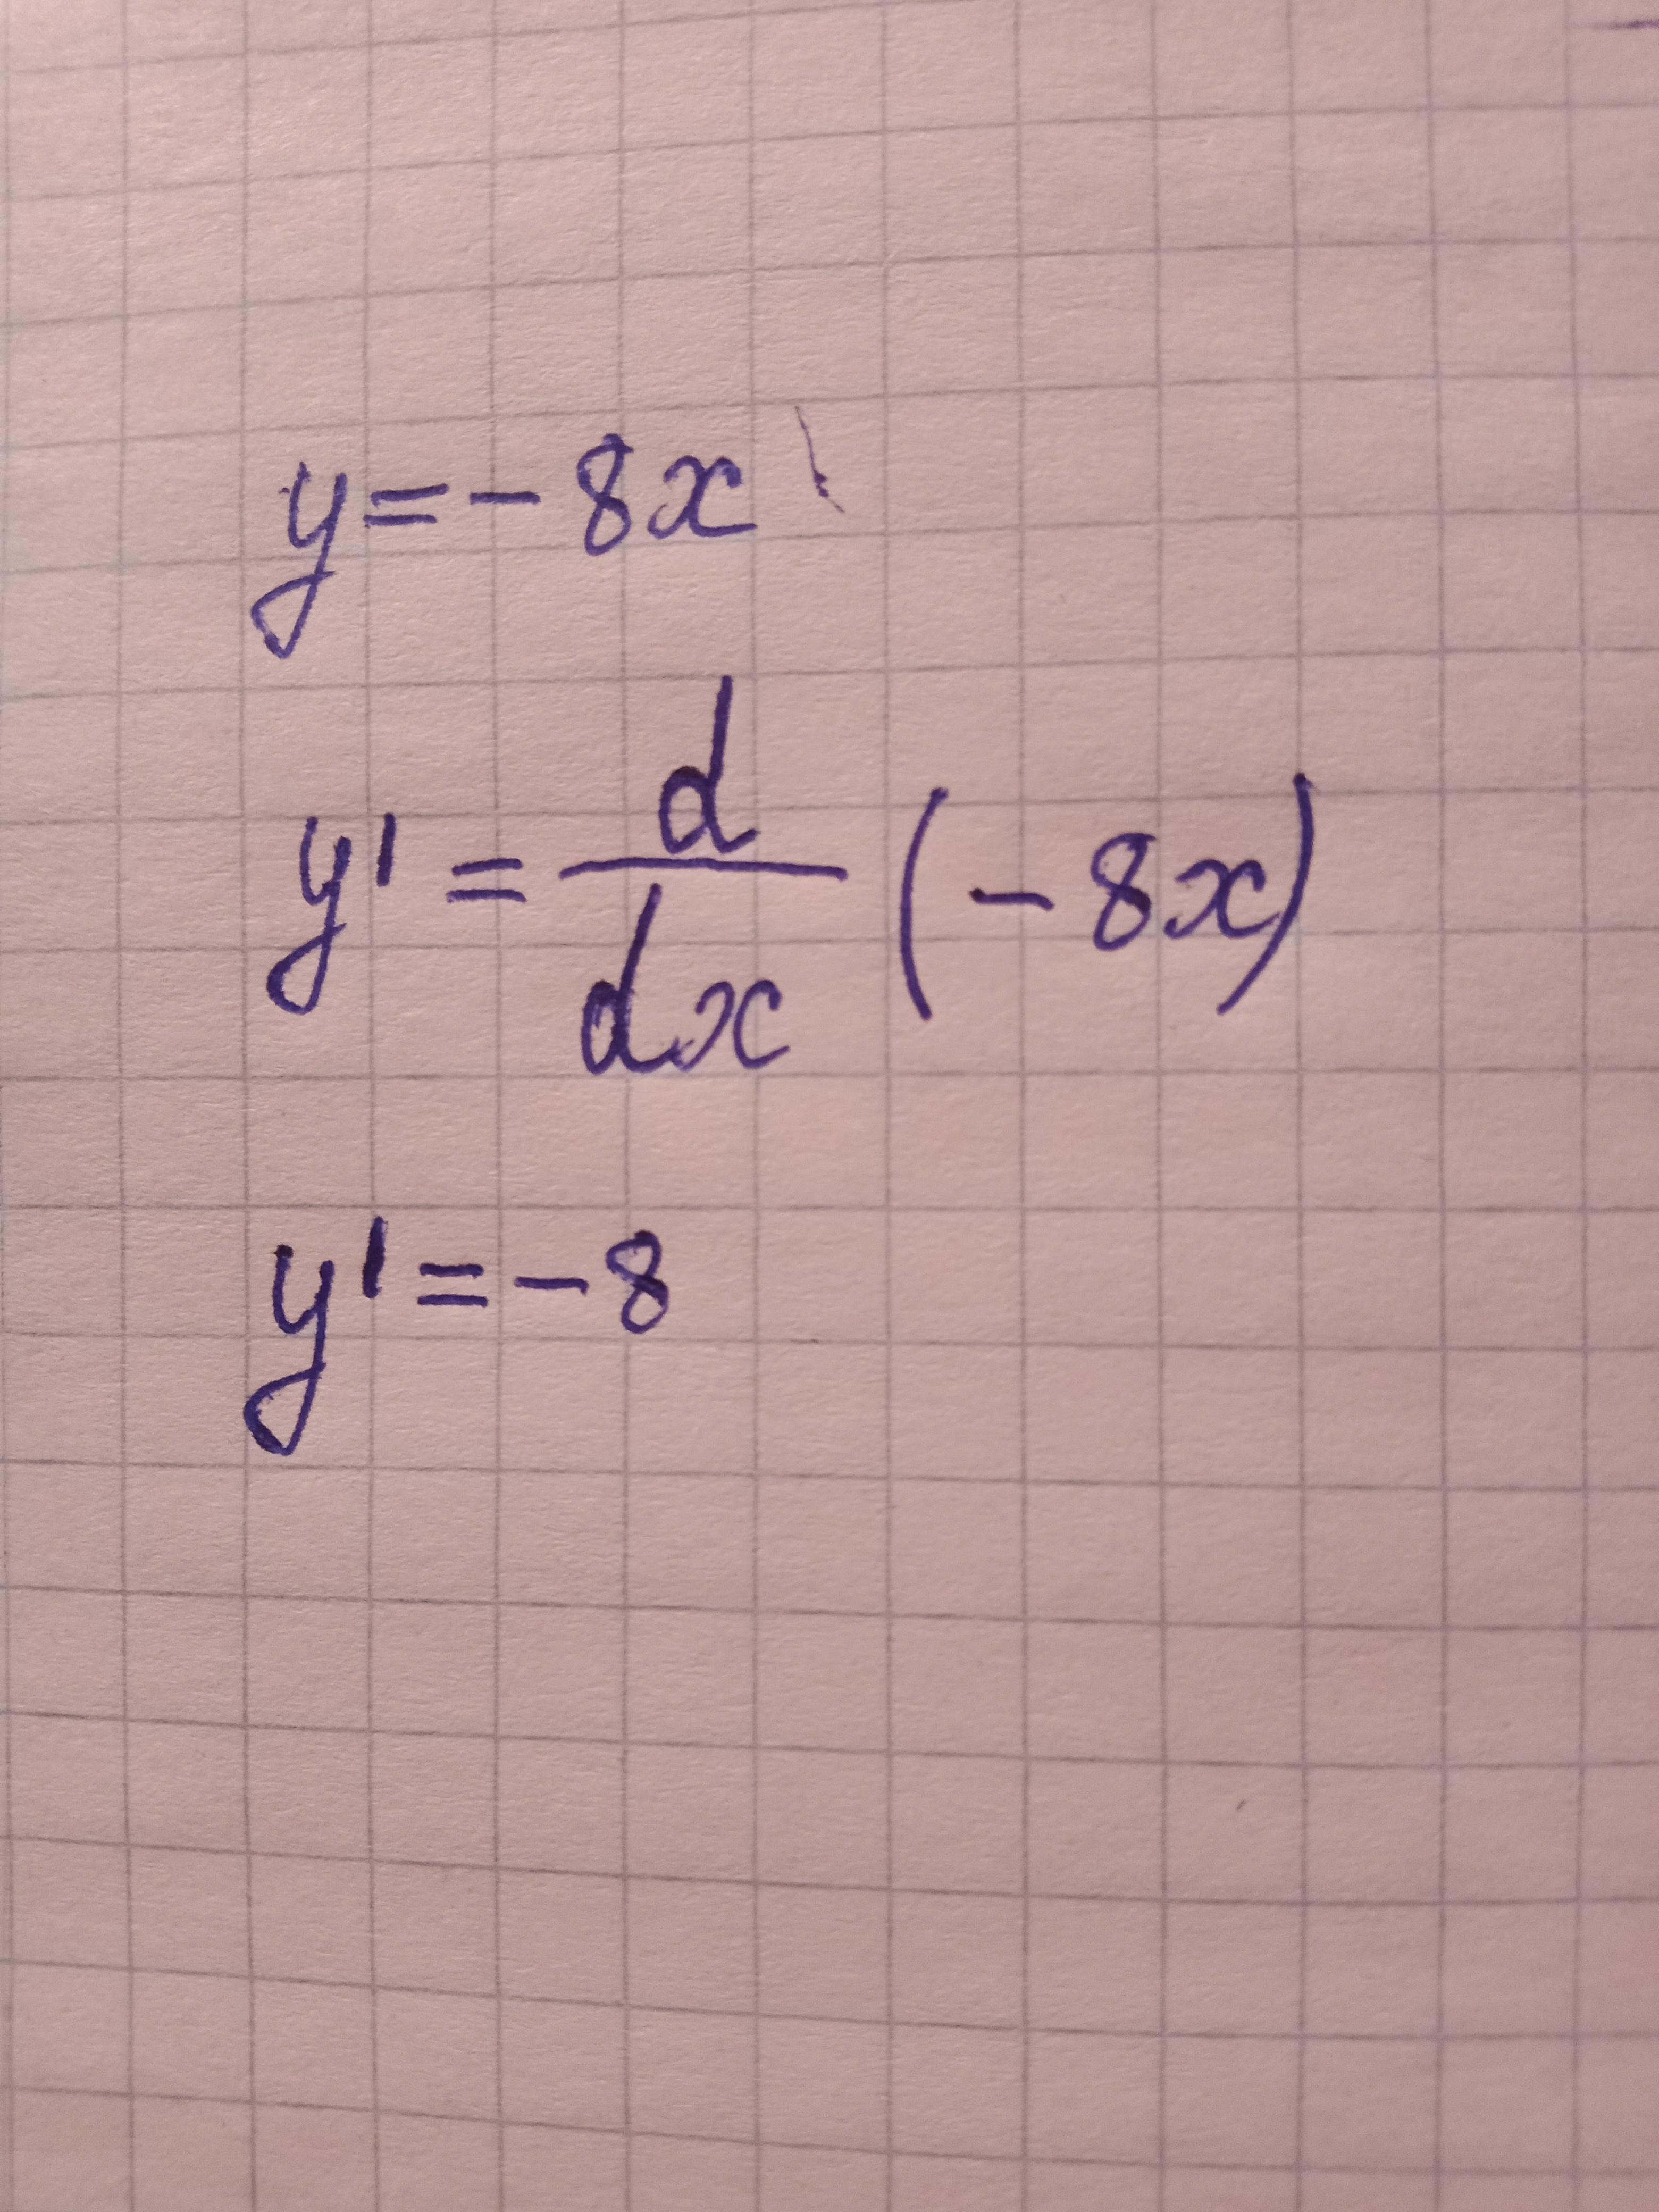 y = -8x
y' = d/dx (-8x)
y' = -8